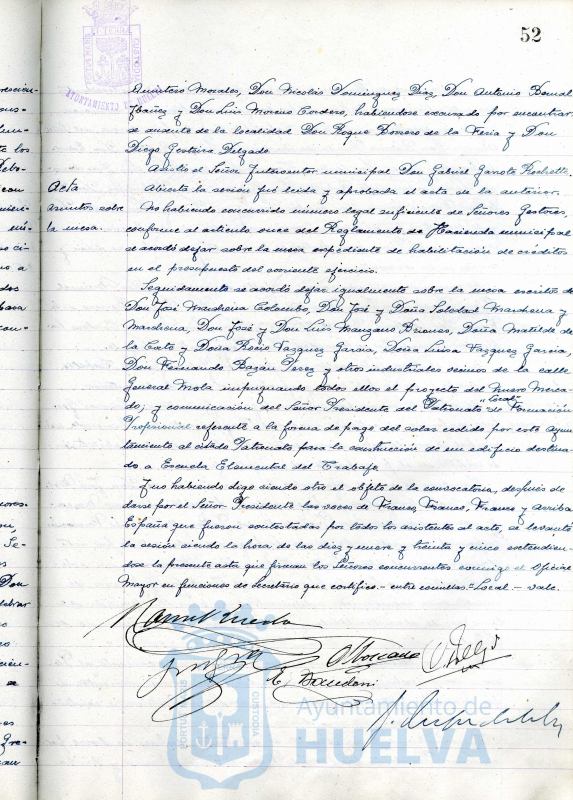 52
Quintero Morales, Don Nicolás Domínguez Díaz, Don Antonio Bernal
Ibañez y Don Luis Moreno Cordero, habiendose excusado por encontrar
se ausente de la localidad Don Roque Borrero de la Feria y Don
Diego Gostaira Delgado.
Asistió el Señor Interventor municipal Don Gabriel Garrote
Abierta la sesión fué leida y aprobada el acta de la anterior.
Acta
asuntos sobre
la mesa.
No habiendo concurrido número legal suficiente de Señores Gestores,
conforme al articulo once del Reglamento de Hacienda municipal
se acordó dejar sobre la mesa expediente de habilitación de créditos
en el presupuesto del corriente ejercicio.
Seguidamente se acordó dejar igualmente sobre la mesa escritos de
Don José Marchena Colombo, Don José y Doña Soledad Marchena y
Marchena, Don José y Don Luis Manzano Briones, Doña Matilde de
la Corte y Doña Rocio Vazquez Garcia, Doña Luisa Vazquez Garcia,
Don Fernando Bazán Perez y otros industriales vecinos de la calle
General Mola impugnando todos ellos el proyecto del Nuevo Merca-
do; y comunicación del Señor Presidente del Patronato "Local" de Formación
Profesional referente a la forma de pago del solar cedido por este ayun
tamiento al citado Patronato para la construcción de un edificio destina-
do a Escuela Elemental del Trabajo
Y no habiendo digo siendo otro el objeto de la convocatoria, después de
darse por el Señor Presidente las voces de Franco, Franco, Franco y Arriba
España que fueron contestadas por todos los asistentes al acto, se levantó
la sesión siendo la hora de las diez y nueve y treinta y cinco extendien-
dose la presente acta que firman los Señores concurrentes conmigo el Oficial
Mayor en funciones de Secretario que certifico.- entre comillas-Local.- vale.
Ayuntamiento de
HUELVA